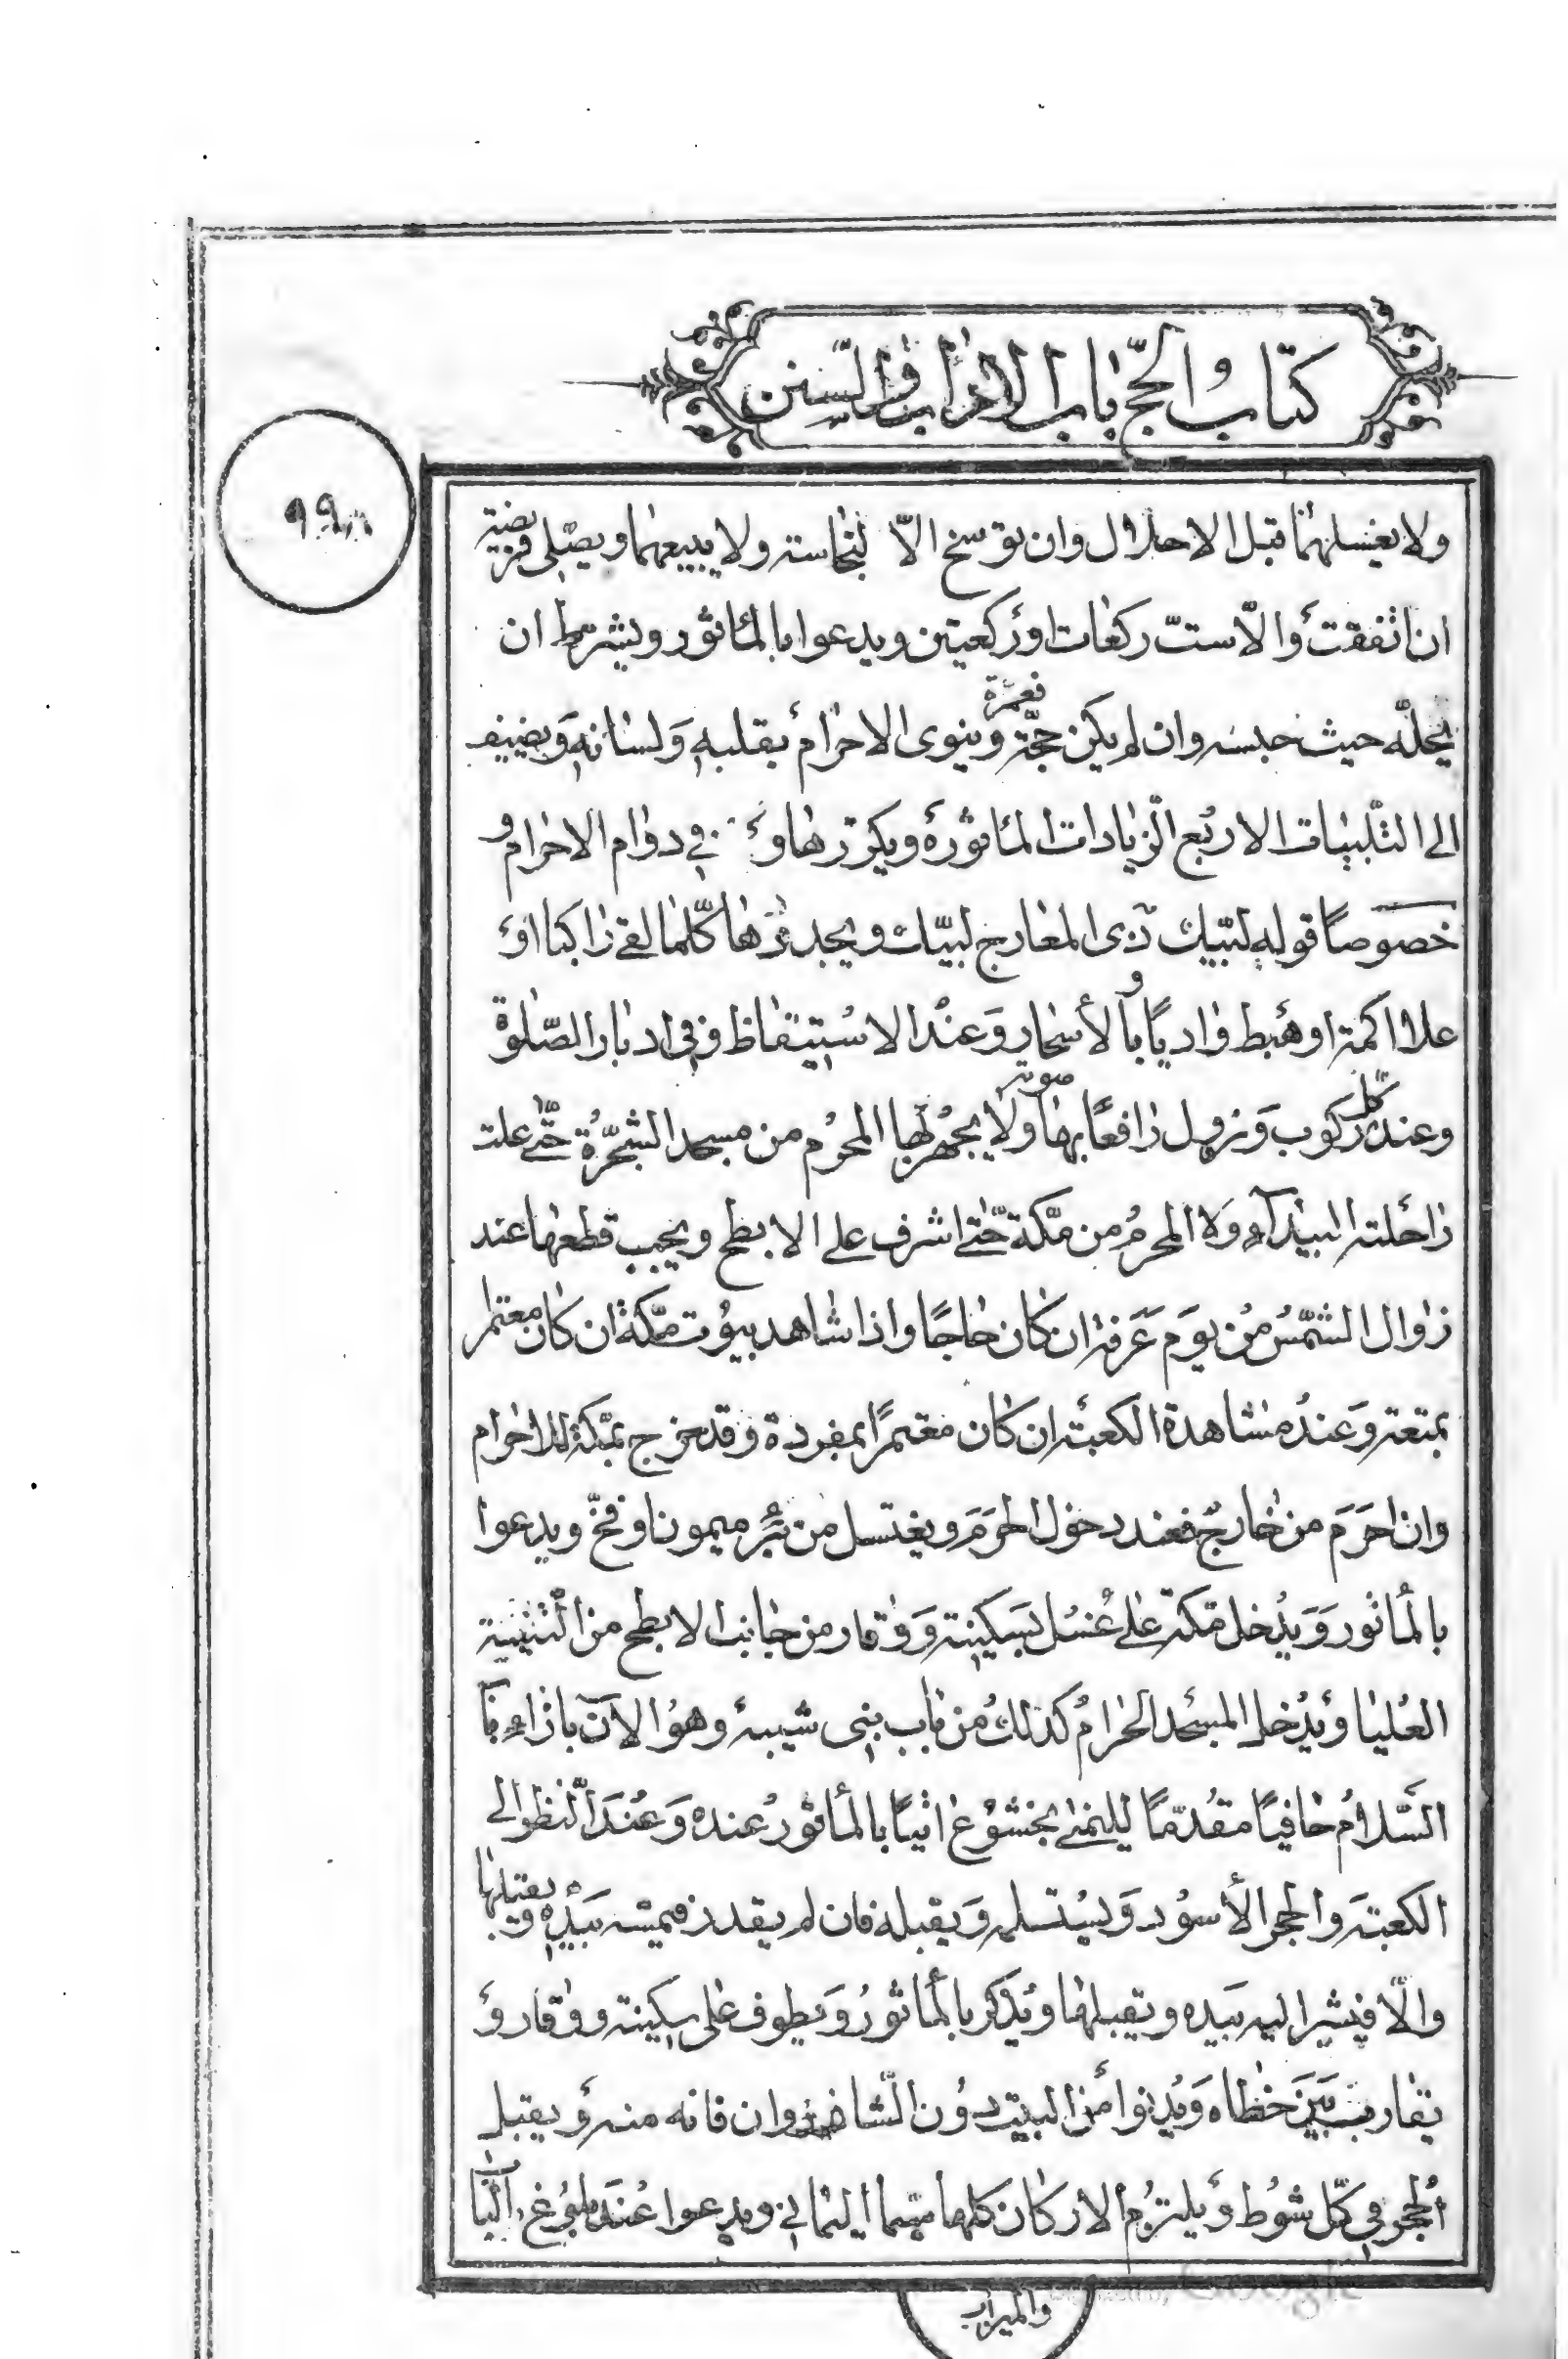 كتاب الحج و باب الاداب والسنن
ولا يغسلهما قبل الاحلال وان توسخ الّا لنجاسة ولا يبيعهما ويصلى فريضة
ان اتفقت والّا ستّ ركعات او ركعتين ويدعوا بالمأثور ويشترط ان
يحلّه حيث حبسه وان لم يكن حجّة فعمرة وينوى الاحرام بقلبه ولسانه ويضيف
الى التلبيات الاربع الزيادات المأثورة ويكررها فى دوام الاحرام و
خصوصًا قوله لبّيك ذى المعارج لبيك ويجدرها كلّما لقى راكبا او
علا اكمة او هبط واديًا و بالأسحار وعند الاستيقاظ وفى ادبار الصّلوة
وعند كلّ ركوب ونزول رافعًا بها صوته ولا يجهر بها المحرم من مسجد الشجرة حتّى علت
راحلته البيداء ولا المحرم من مكّة حتّى اشرف على الابطح ويجب قطعها عند
زوال الشمس من يوم عرفة ان كان حاجًا واذا شاهد بيوت مكّة ان كان معتمرا
بمتعة وعند مشاهدة الكعبة ان كان معتمرًا بمفردة وقد خرج بمكّة للاحرام
وان احرم من خارج فعند دخول الحرم ويغتسل من بئر ميمون او فخّ ويدعوا
بالمأثور ويدخل مكة على غسل بسكينة ووقار من جانب الابطح من الثنية
العليا ويدخل المسجد الحرام كذلك من باب بنى شيبة وهو الآن بازاء باب
السّلام حافيًا مقدّمًا لليمنى بخشوع اتيًا بالمأثور عنده وعند النظر الى
الكعبة والحجر الأسود ويستسلمه ويقبله فان لم يقدر فيمسّه بيده ويقبلها
والّا فيشير اليه بيده ويقبلها ويذكر بالمأثور ويطوف على سكينة ووقار و
يقارب بين خطاه ويدنوا من البيت دون الشاذروان فانه منه ويقبل
الحجر فى كلّ شوط ويلتزم الاركان كلها سيما اليمانى ويدعوا عند بلوغ الباب
والميزاب